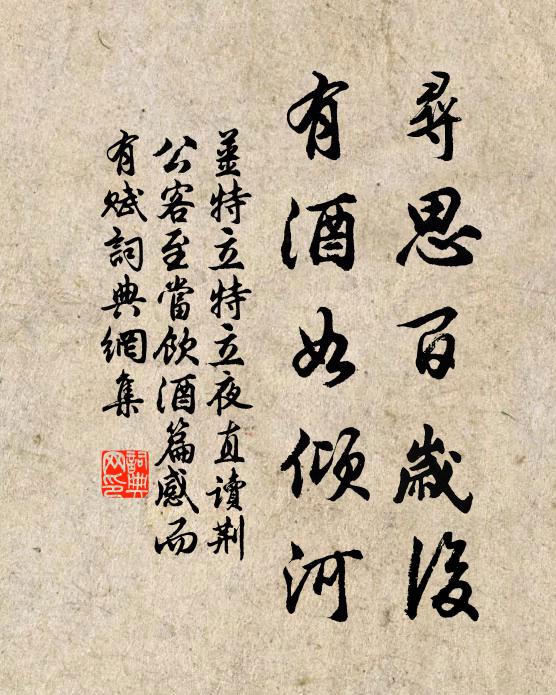 尋思百歲後
有酒如傾河
姜特立特立夜直讀荆
公客至當飲酒篇感而
有賦詞典網集
詞典
网印